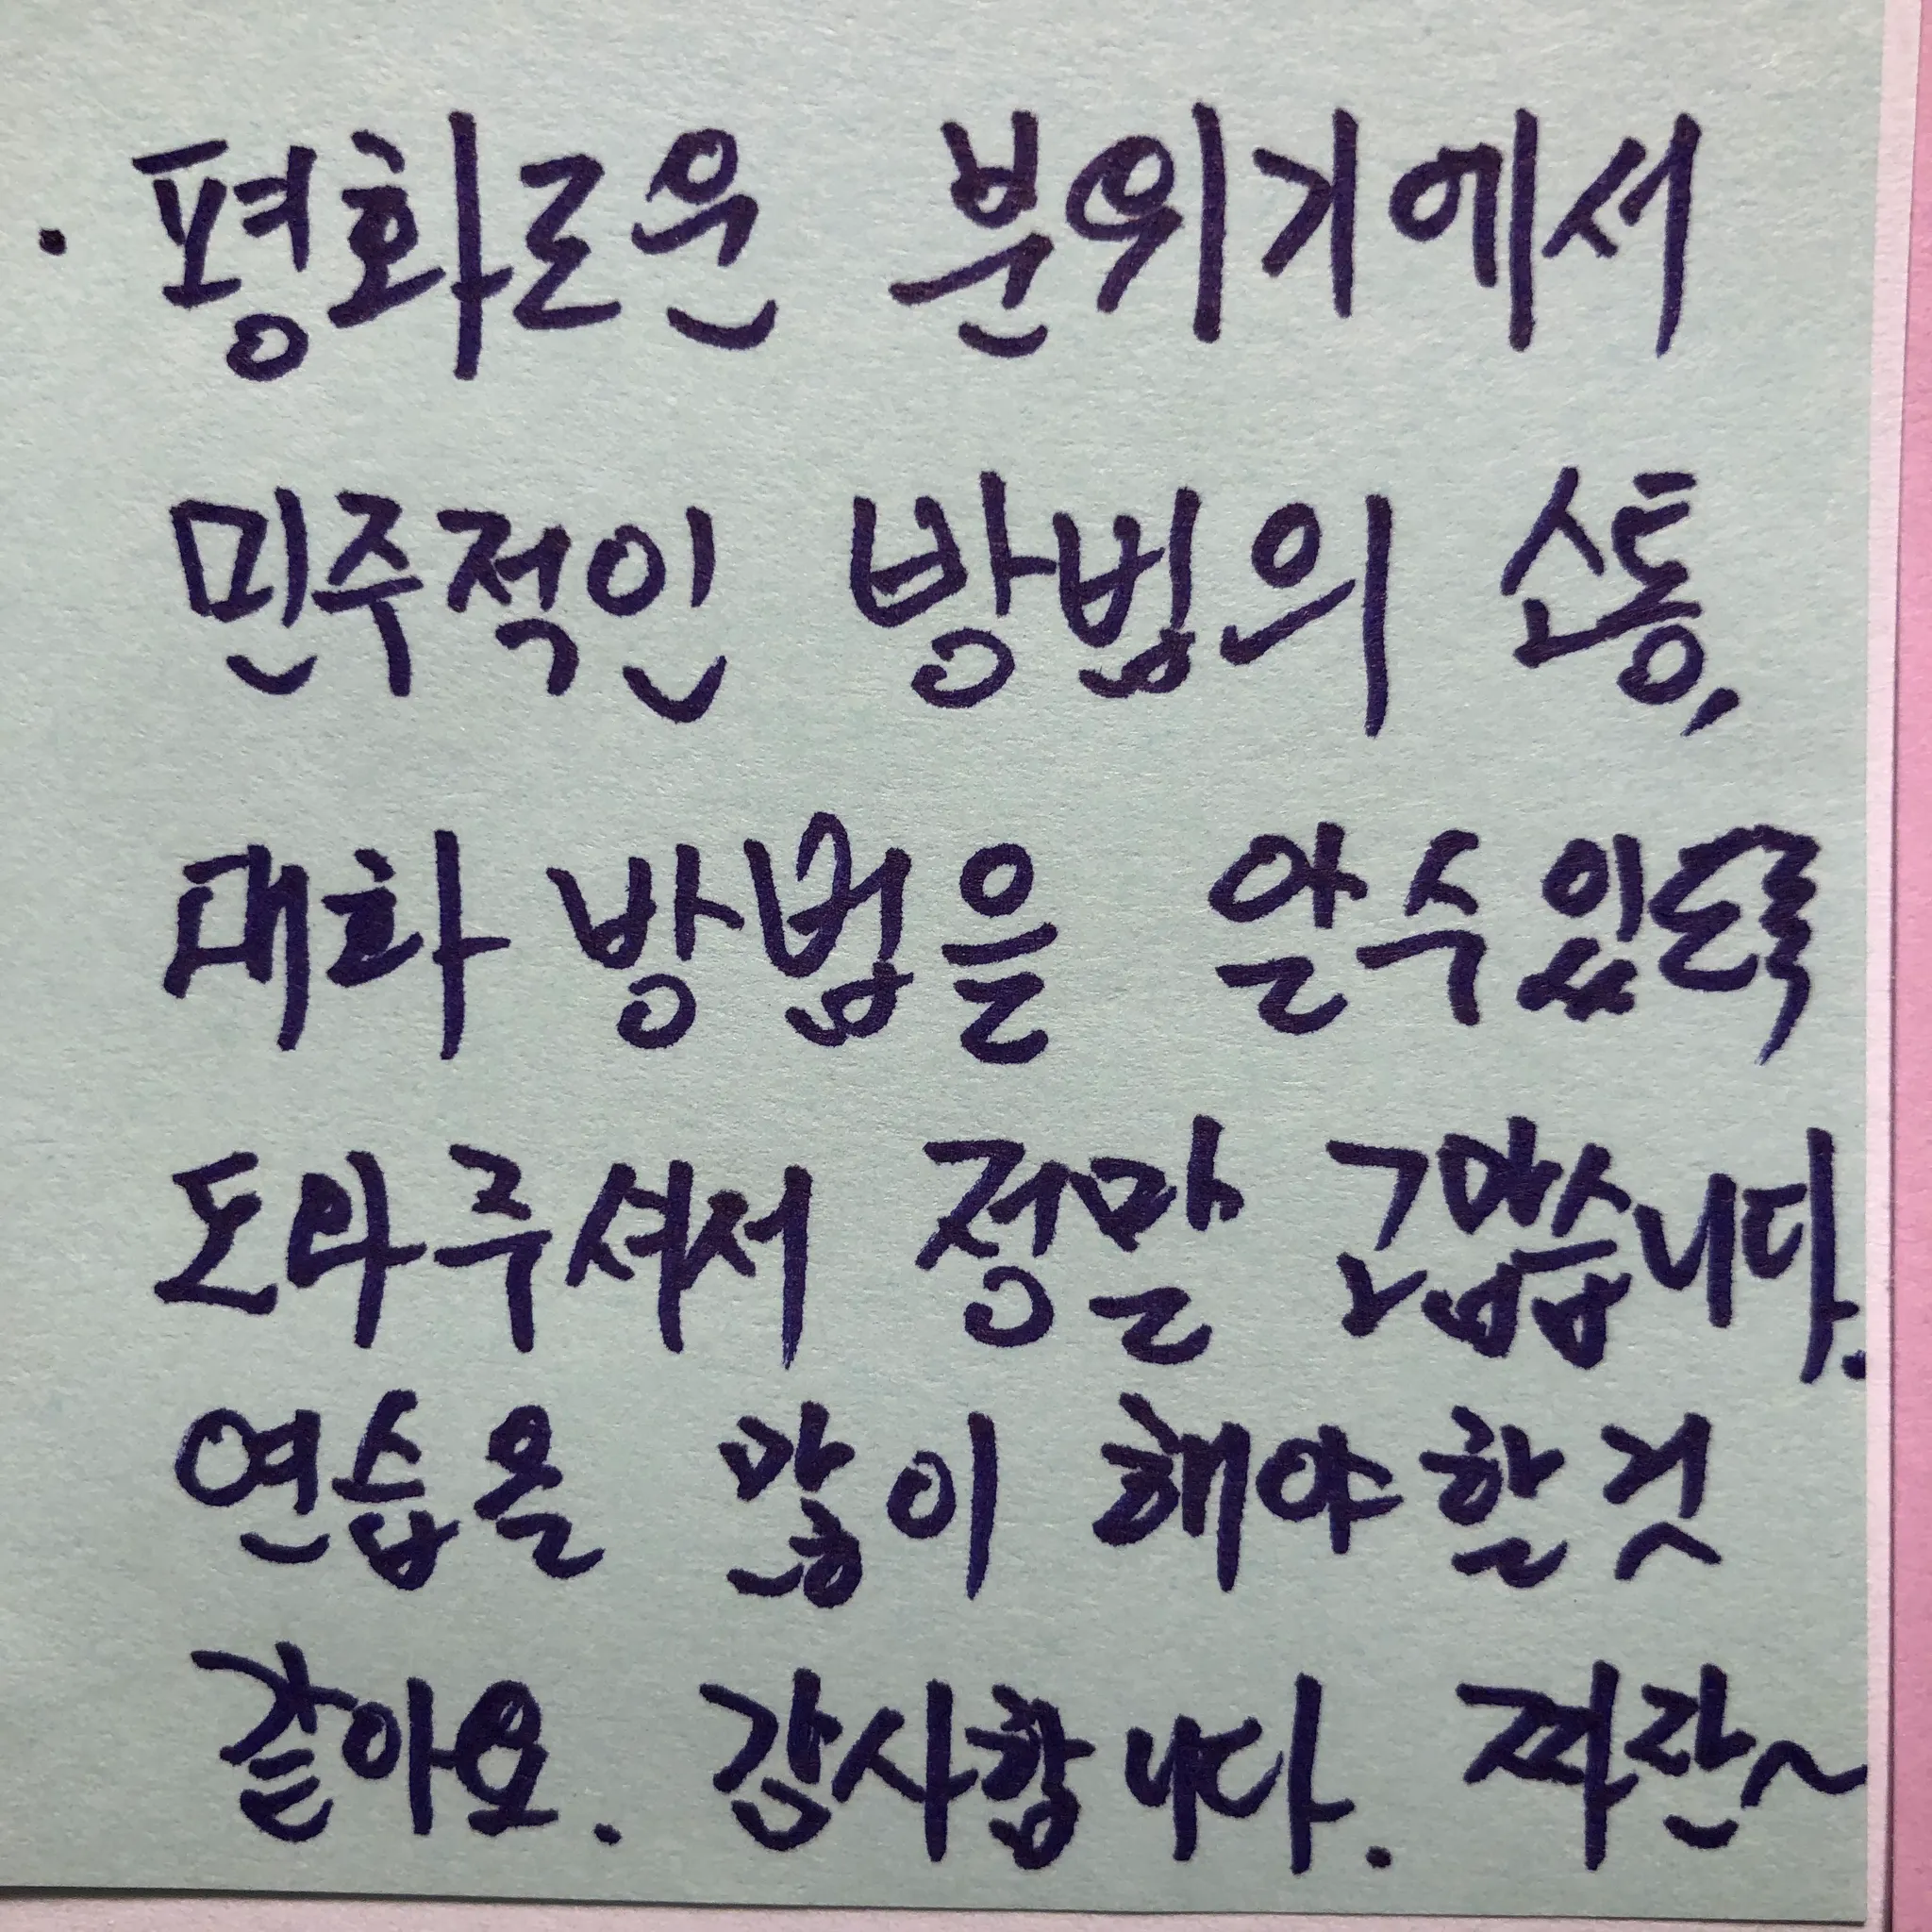 · 평화로운 분위기에서
민주적인 방법의 소통,
대화 방법을 알수있도록
도와주셔서 정말 고맙습니다.
연습을 많이 해야할것
같아요. 감사합니다. 짜잔~